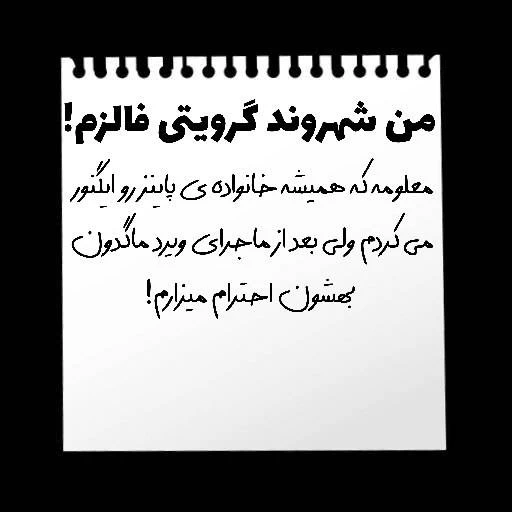 من شهروند گرویتی فالزم!
معلومه که همیشه خانواده ی پاینز رو ایگنور
می کردم ولی بعد از ماجرای ویرد ماگدون
بهشون احترام میزارم!